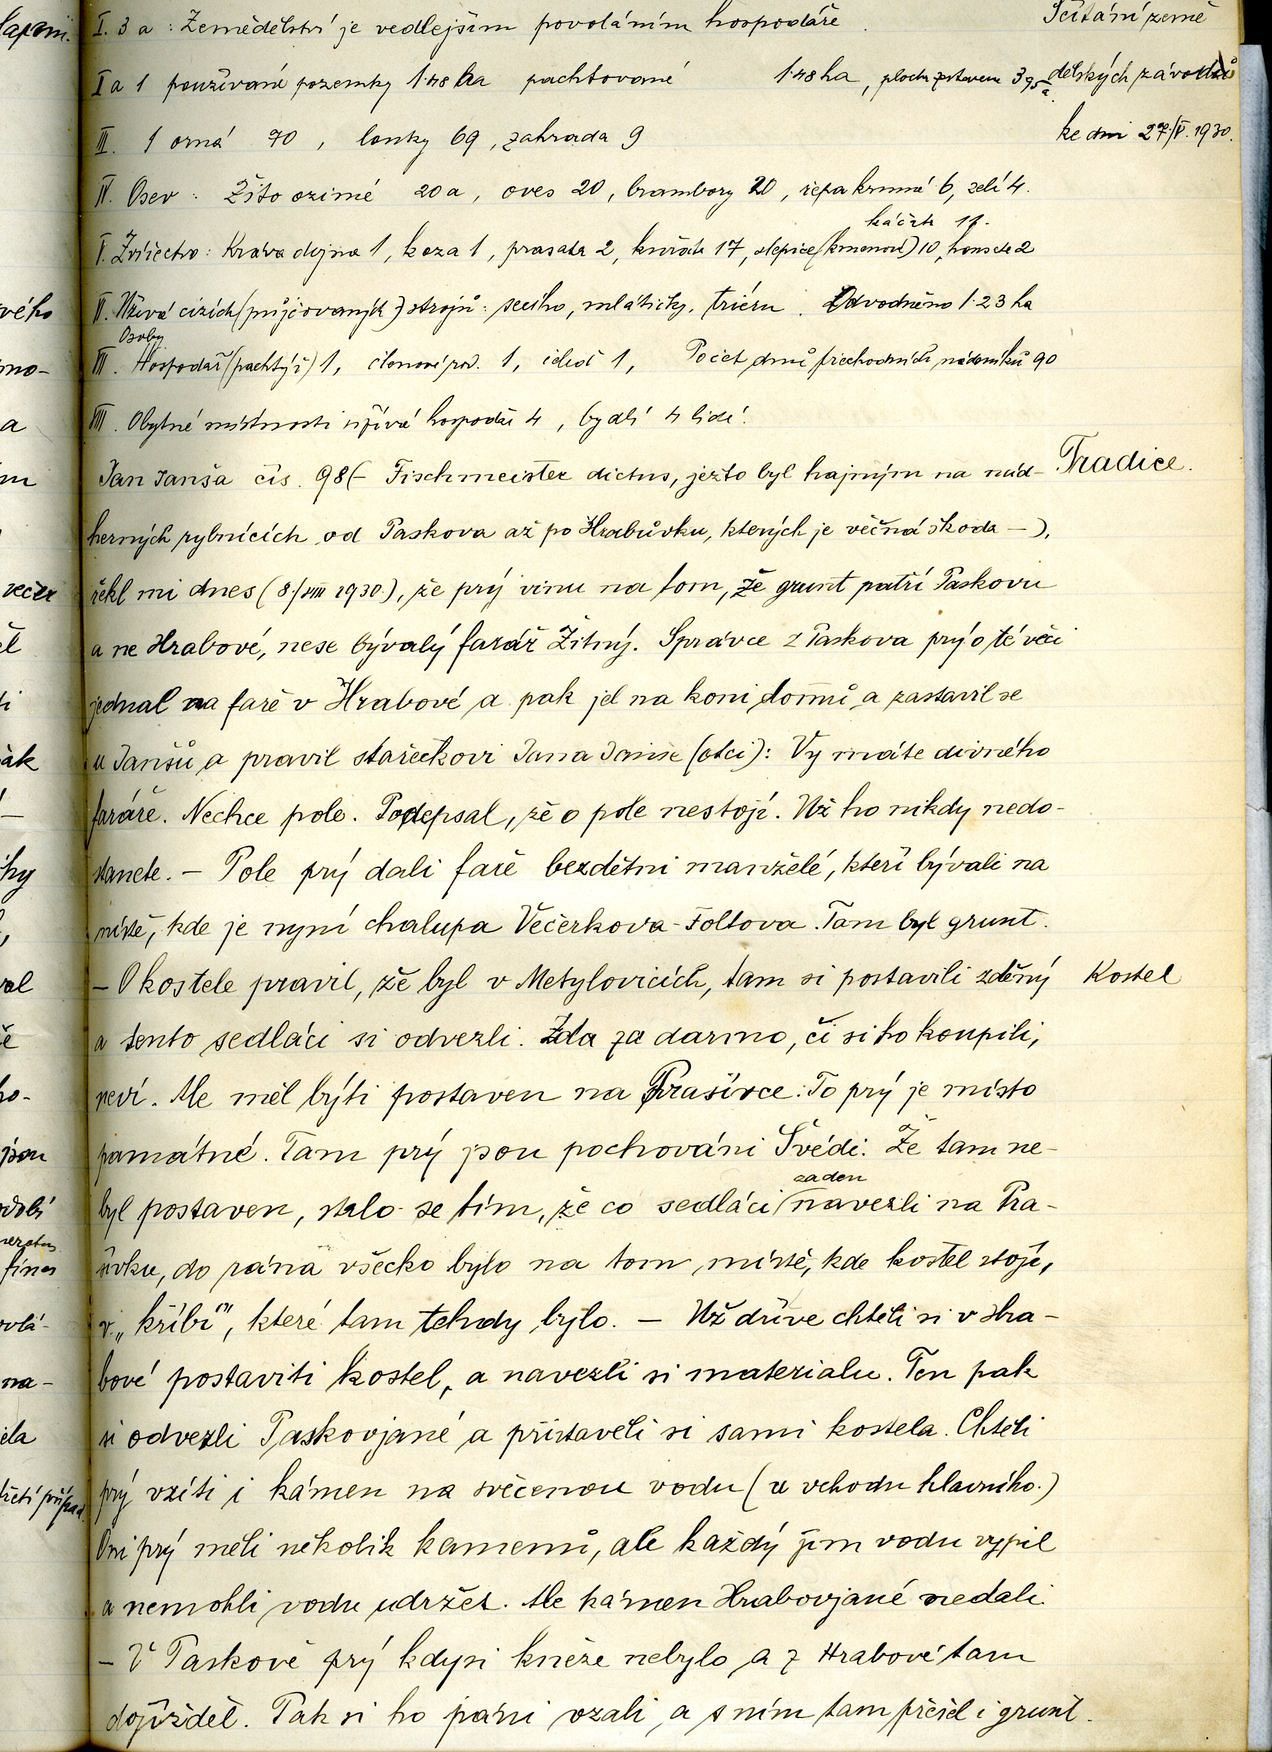 I. 3 a : Zemědělství je vedlejším povoláním hospodáře. Sčítání země
I a 1 používané pozemky 1·48 ha pachtované 1·48 ha, plocha zastavena 3 dělských závodů
III. 1 orná 70, louky 69, zahrada 9 ke dni 27/V. 1930.
IV. Osev : Žito ozimé 20 a, oves 20, brambory 20, řepa krmná 6, zelí 4.
káčata 11.
V. Zvířectvo : Kráva dojná 1, koza 1, prasata 2, kuřata 17, slepice (kmenové) 10, housata 2
VI. Užívá cizích (půjčovaných) strojů : secího, mlátičky, triéru. Odvodněno 1·23 ha
Osoby
VII. Hospodář (pachtýř) 1, členové rod. 1, čeleď 1, Počet dnů přechodních nádeníků 90
VIII. Obytné místnosti užívá hospodář 4, bydlí 4 lidí.
Jan Janša čís. 98 (– Fischmeister dictus, ježto byl hajným na nád- Tradice.
herných rybnících od Paskova až po Hrabůvku, kterých je věčná škoda –),
řekl mi dnes (8/VIII 1930), že prý vinu na tom, že grunt patří Paskovu
a ne Hrabové, nese bývalý farář Žitný. Správce z Paskova prý o té věci
jednal na faře v Hrabové a pak jel na koni domů a zastavil se
u Janšů a pravil stařečkovi Jana Janše (otci): Vy máte divného
faráře. Nechce pole. Podepsal, že o pole nestojí. Už ho nikdy nedo-
stanete. – Pole prý dali faře bezdětní manželé, kteří bývali na
místě, kde je nyní chalupa Večerkova-Foltova. Tam byl grunt.
– O kostele pravil, že byl v Metylovicích, tam si postavili zděný Kostel
a tento sedláci si odvezli. Zda za darmo, či si ho koupili,
neví. Ale měl býti postaven na Prašivce. To prý je místo
památné. Tam prý jsou pochováni Švédi. Že tam ne-
zaden
byl postaven, stalo se tím, že co sedláci navezli na Pra-
šivku, do rána všecko bylo na tom místě, kde kostel stojí,
v „kříbí“, které tam tehdy bylo. – Už dříve chtěli si v Hra-
bové postaviti kostel, a navezli si materialu. Ten pak
si odvezli Paskovjané a přistavěli si sami kostela. Chtěli
prý vzíti i kámen na svěcenou vodu (u vchodu hlavního.)
Oni prý měli několik kamenů, ale každý jim vodu vypil
a nemohli vodu udržet. Ale kámen Hrabovjané nedali.
– V Paskově prý kdysi kněze nebylo a z Hrabové tam
dojížděl. Pak si ho páni vzali, a s ním tam přešel i grunt.